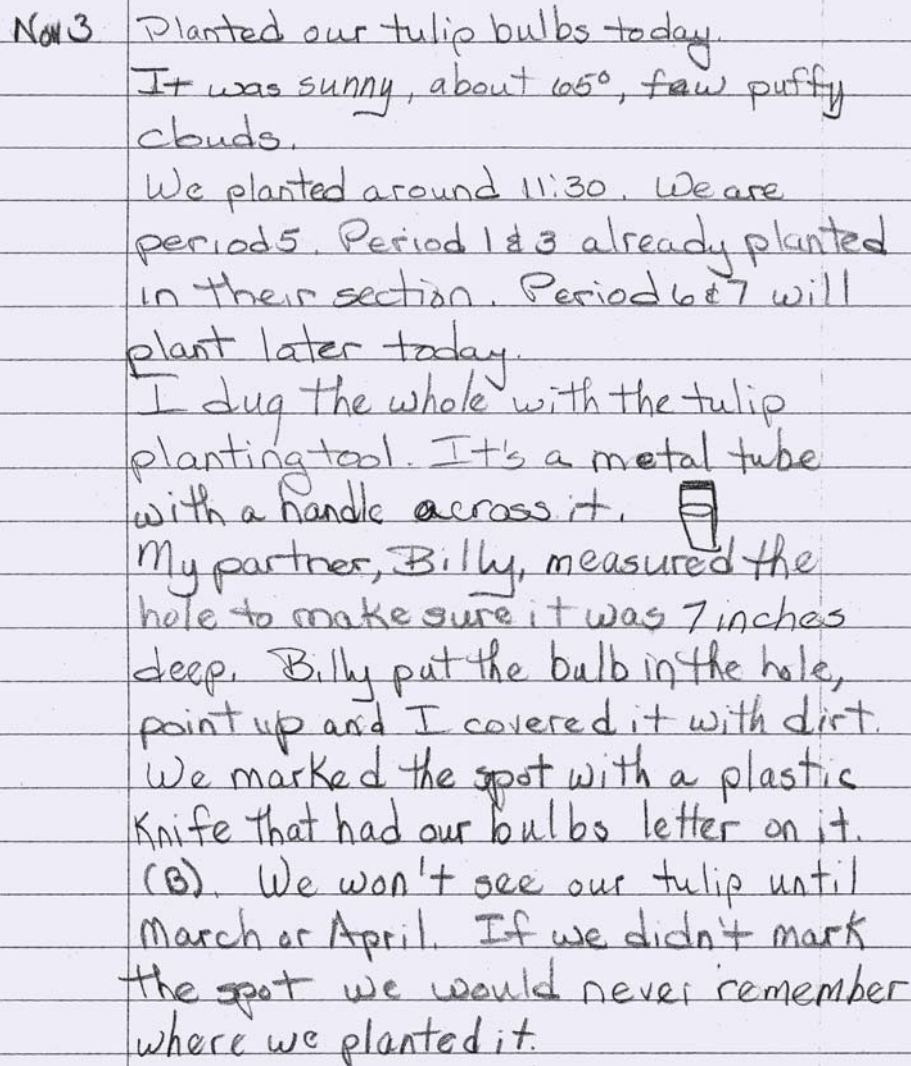 Nov 3 Planted our tulip bulbs today.
It was sunny, about 65°, few puffy
clouds.
We planted around 11:30. We are
period 5. Period 1 & 3 already planted
in their section. Period 6 & 7 will
plant later today.
I dug the whole with the tulip
planting tool. It's a metal tube
with a handle across it.
My partner, Billy, measured the
hole to make sure it was 7 inches
deep. Billy put the bulb in the hole,
point up and I covered it with dirt.
We marked the spot with a plastic
knife that had our bulbs letter on it.
(B). We won't see our tulip until
March or April. If we didn't mark
the spot we would never remember
where we planted it.